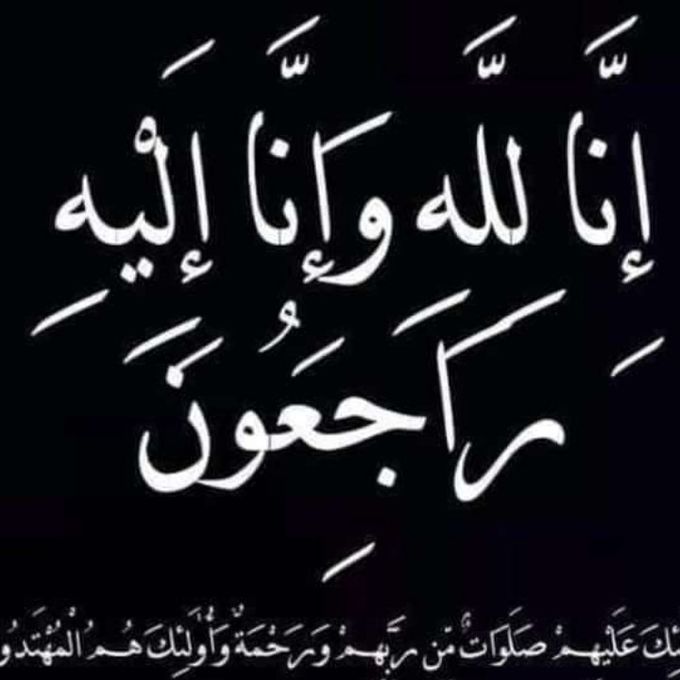 إِنَّا لِلَّهِ وَإِنَّا إِلَيْهِ
رَاجِعُونَ
ئِكَ عَلَيْهِمْ صَلَوَاتٌ مِّن رَّبِّهِمْ وَرَحْمَةٌ وَأُولَٰئِكَ هُمُ الْمُهْتَدُو